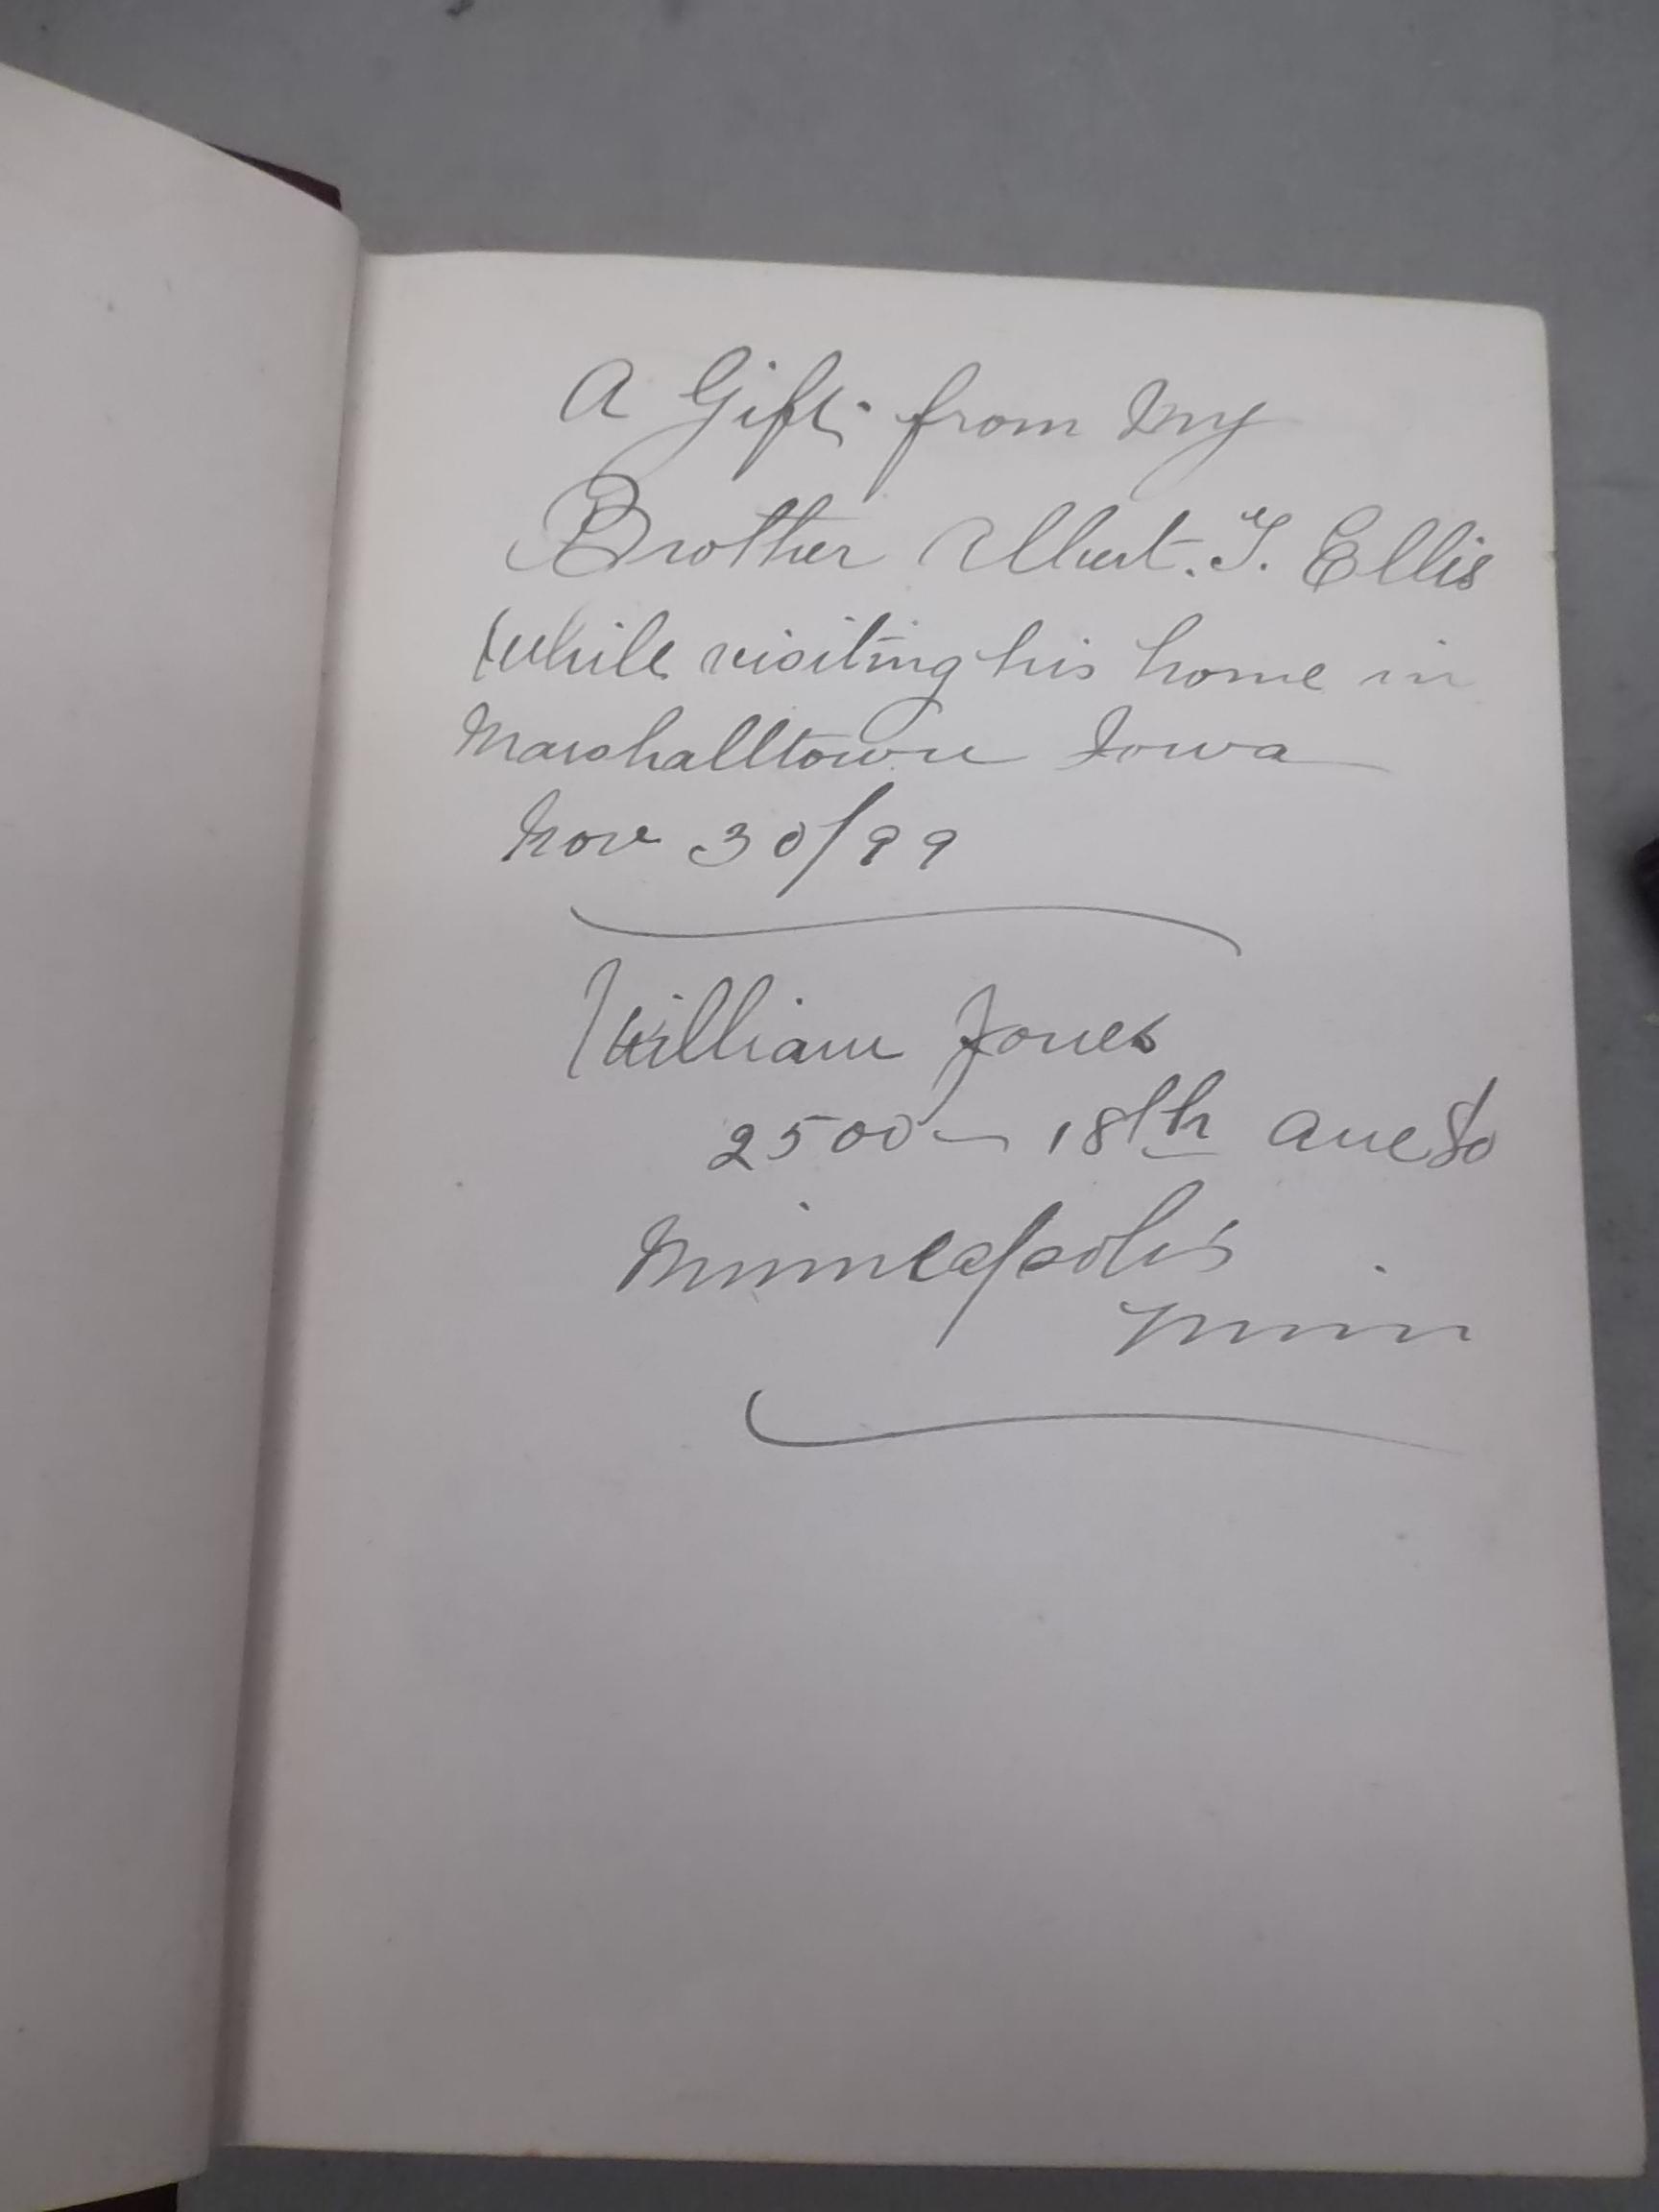 A Gift from My
Brother Albert. T. Ellis
While visiting his home in
Marshalltown Iowa
Nov 30/99
William Jones
2500 - 18th Ave So
Minneapolis
Minn